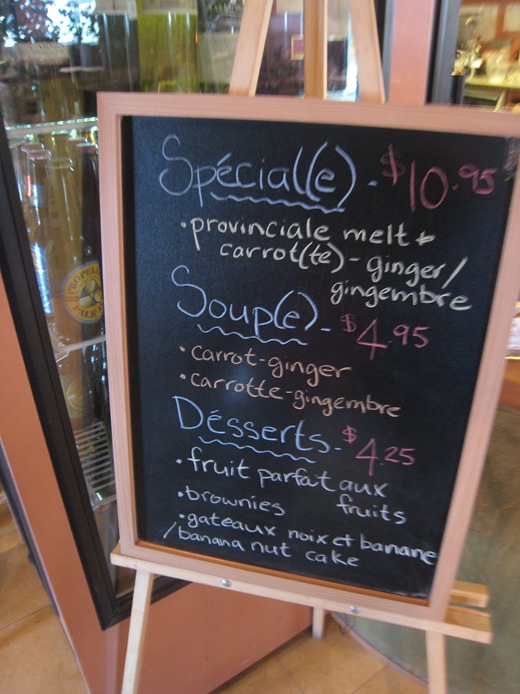 Spécial(e). $10.95
• provinciale melt +
carrot(te) - ginger/
gingembre
Soup(e) - $4.95
• carrot-ginger
• carrotte-gingembre
Désserts - $4.25
• fruit parfait aux
fruits
• brownies
• gateaux noix et banane
/banana nut cake
PROPELLER
PALE